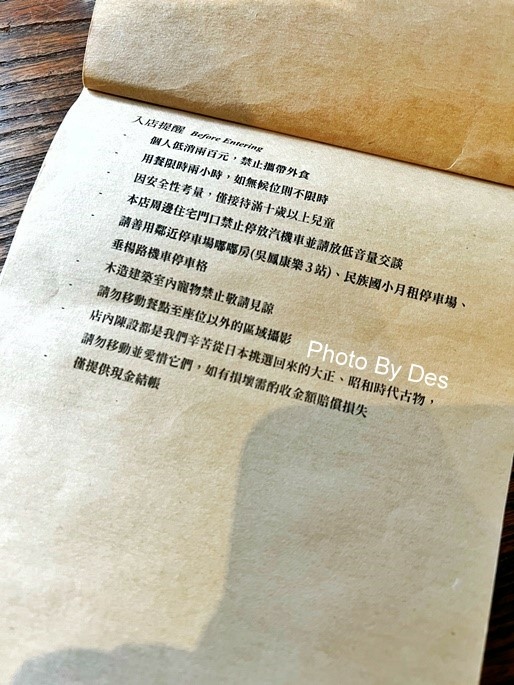 入店提醒 Before Entering
· 個人低消兩百元，禁止攜帶外食
· 用餐限時兩小時，如無候位則不限時
· 因安全性考量，僅接待滿十歲以上兒童
· 本店周邊住宅門口禁止停放汽機車並請放低音量交談
請善用鄰近停車場嘟嘟房(吳鳳康樂3站)、民族國小月租停車場、
垂楊路機車停車格
· 木造建築室內寵物禁止敬請見諒
· 請勿移動餐點至座位以外的區域攝影
· 店內陳設都是我們辛苦從日本挑選回來的大正、昭和時代古物，
請勿移動並愛惜它們，如有損壞需酌收金額賠償損失
· 僅提供現金結帳
Photo By Des